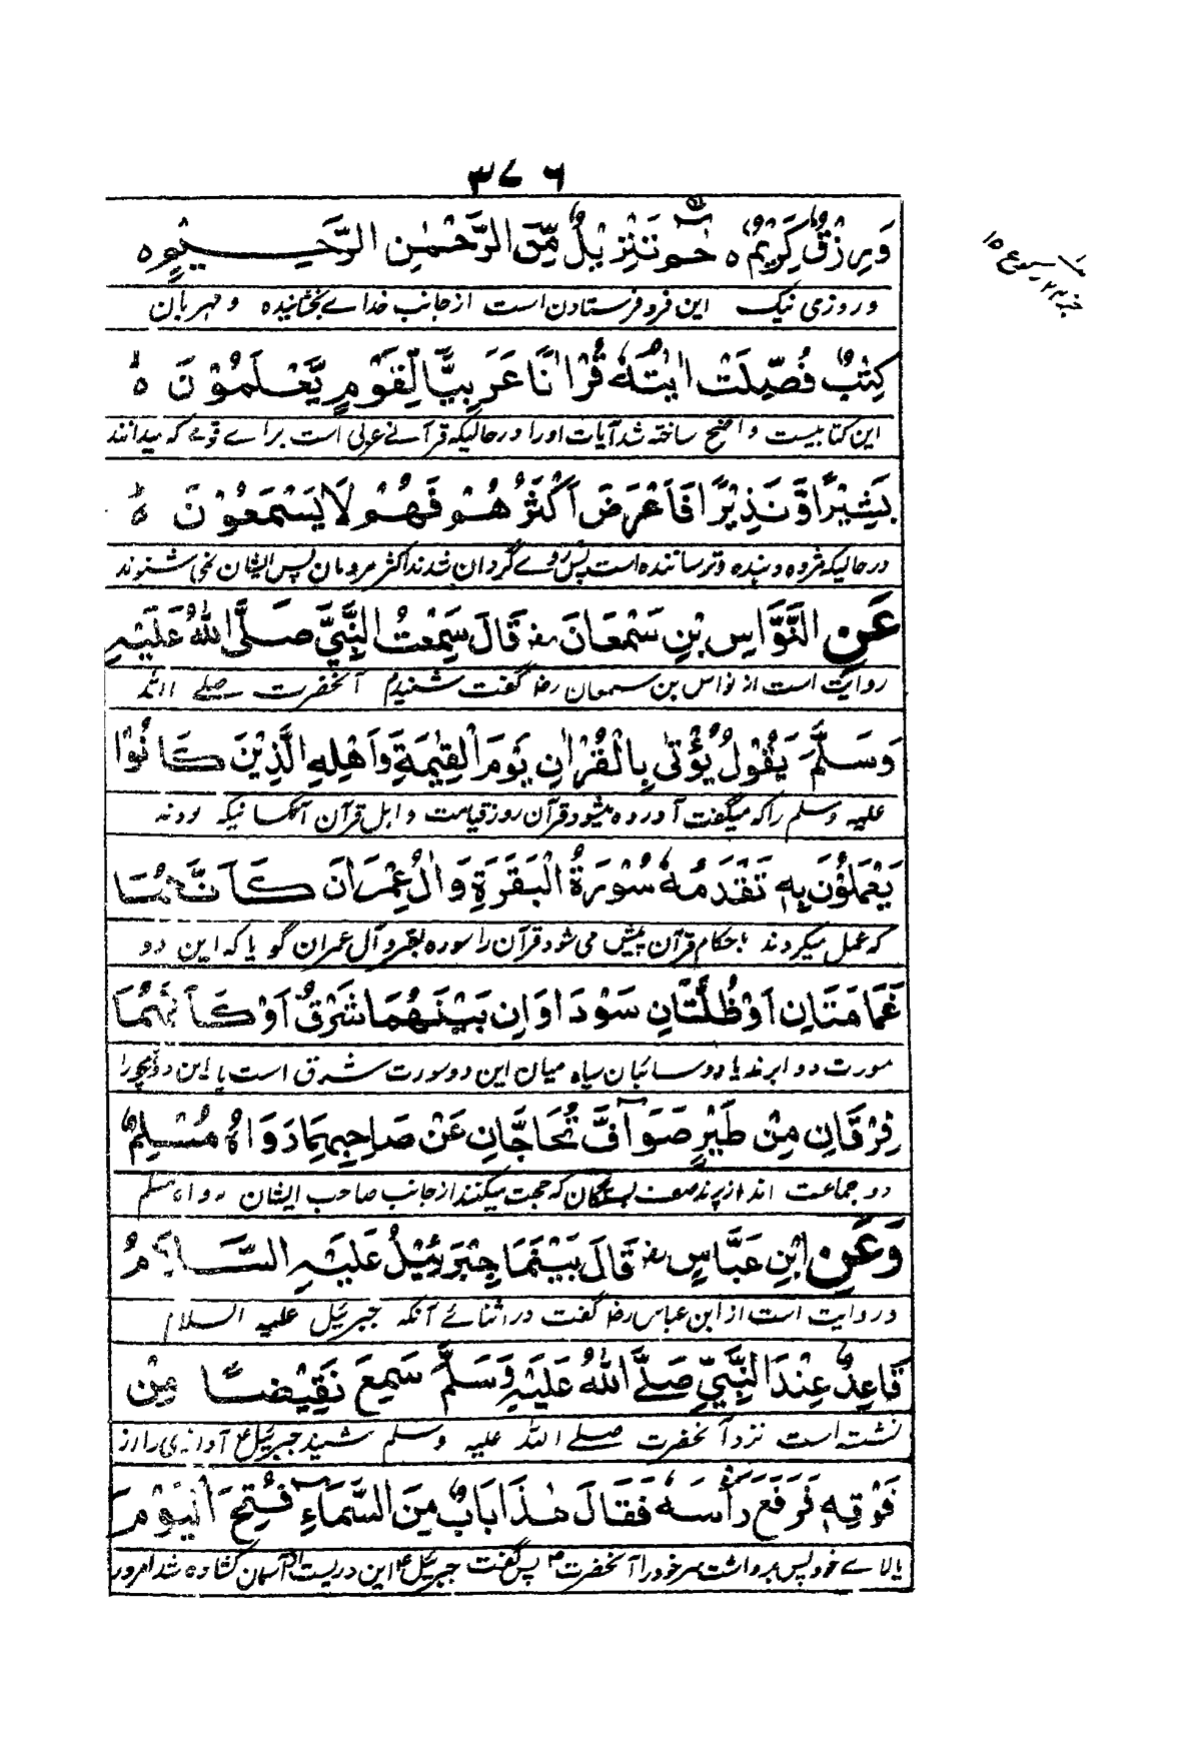 ۳۷۶
وَرِزْقٌ كَرِيْمٌ ہ حٰمٓ تَنْزِيْلٌ مِّنَ الرَّحْمٰنِ الرَّحِـــيْمِ ہ
و روزی نیک این فرو فرستادن است از جانب خداے بخشایندہ و مہربان
كِتٰبٌ فُصِّلَتْ اٰيٰتُهٗ قُرْاٰنًا عَرَبِيًّا لِّقَوْمٍ يَّعْلَمُوْنَ ہ
این کتابیست واضح ساختہ شد آیات اورا درحالیکہ قرآنے عربی است براے قومے کہ میدانند
بَشِيْرًا وَّنَذِيْرًا فَاَعْرَضَ اَكْثَرُهُمْ فَهُمْ لَا يَسْمَعُوْنَ ہ
درحالیکہ مژدہ دہندہ و ترسانندہ است پس روے گردان شدند اکثر مردمان پس ایشان نمی شنوند
عَنِ النَّوَّاسِ بْنِ سَمْعَانَ رض قَالَ سَمِعْتُ النَّبِيَّ صَلَّى اللهُ عَلَيْهِ
روایت است از نواس بن سمعان رض گفت شنیدم آنحضرت صلے اللہ
وَسَلَّمَ يَقُوْلُ يُؤْتٰى بِالْقُرْاٰنِ يَوْمَ الْقِيٰمَةِ وَاَهْلِهِ الَّذِيْنَ كَانُوْا
علیہ وسلم را کہ میگفت آوردہ میشود قرآن روز قیامت و اہل قرآن آنکسانیکہ بودند
يَعْمَلُوْنَ بِهٖ تَقْدَمُهٗ سُوْرَةُ الْبَقَرَةِ وَاٰلُ عِمْرَانَ كَاَنَّهُمَا
کہ عمل میکردند باحکام قرآن پیش می شود قرآن را سورہ بقر و آل عمران گویا کہ این دو
غَمَامَتَانِ اَوْ ظُلَّتَانِ سَوْدَاوَانِ بَيْنَهُمَا شَرْقٌ اَوْ كَاَنَّهُمَا
سورت دو ابرند یا دو سائبان سیاہ میان این دو سورت شرق است یا این دو
فِرْقَانِ مِنْ طَيْرٍ صَوَآفَّ تُحَاجَّانِ عَنْ صَاحِبِهِمَا رَوَاهُ مُسْلِمٌ
دو جماعت اند از پرند صف بستگان کہ حجت میکنند از جانب صاحب ایشان رواہ مسلم
وَعَنِ ابْنِ عَبَّاسٍ رض قَالَ بَيْنَمَا جِبْرَئِيْلُ عَلَيْهِ السَّلَامُ
و روایت است از ابن عباس رض گفت در اثنائے آنکہ جبرئیل علیہ السلام
قَاعِدٌ عِنْدَ النَّبِيِّ صَلَّے اللهُ عَلَيْهِ وَسَلَّمَ سَمِعَ نَقِيْضًا مِنْ
نشستہ است نزد آنحضرت صلے اللہ علیہ وسلم شنید جبرئیل آوازی را از
فَوْقِهٖ فَرَفَعَ رَأْسَهٗ فَقَالَ هٰذَا بَابٌ مِنَ السَّمَاءِ فُتِحَ الْيَوْمَ
بالاے خود پس برداشت سر خود را آنحضرت پس گفت جبرئیل این دریست از آسمان کشادہ شد امروز